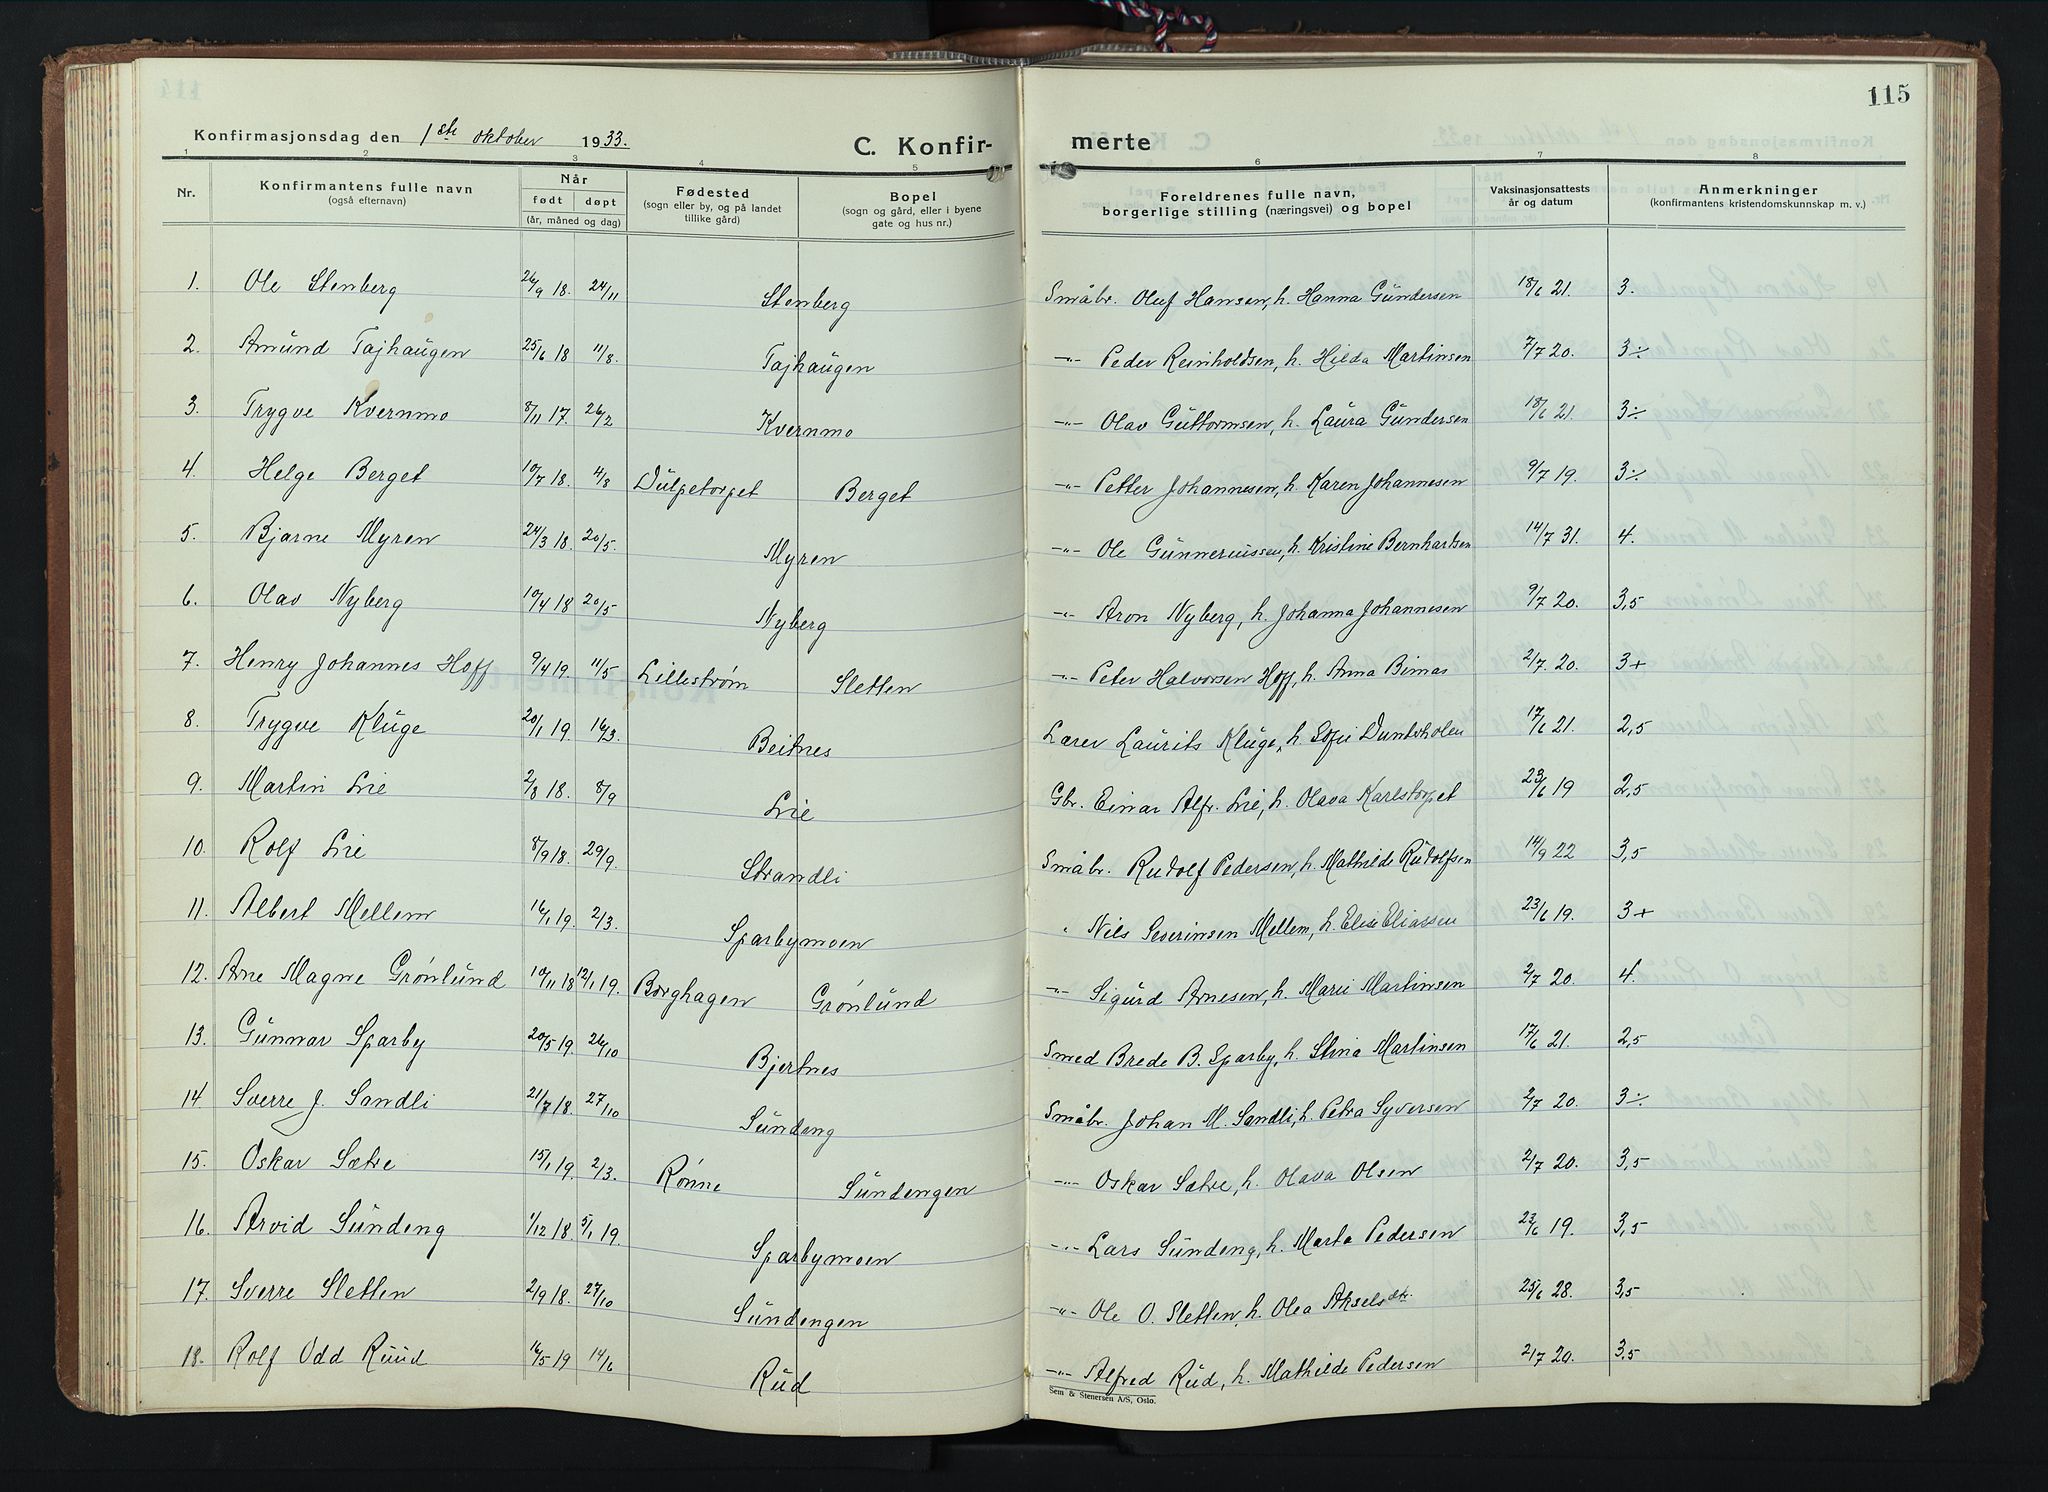 115
Konfirmasjonsdag den 1ste oktober 1933.
C. Konfirmerte
1 2 3 4 5 6 7 8
Nr. Konfirmantens fulle navn (også efternavn) Når født døpt (år, måned og dag) Fødested (sogn eller by, og på landet tillike gård) Bopel (sogn og gård, eller i byene gate og hus nr.) Foreldrenes fulle navn, borgerlige stilling (næringsvei) og bopel Vaksinasjonsattests år og datum Anmerkninger (konfirmantens kristendomskunnskap m. v.)
1. Ole Stenberg 26/9 18. 24/11 Stenberg Småbr. Oluf Hansen, h. Hanna Gundersen 18/6 21. 3.
2. Amund Tajhaugen 25/6 18 11/8. Tajhaugen -"- Peder Reinholdsen, h. Hilda Martinsen 7/7 20. 3÷
3. Trygve Kvernmo 8/11 17. 26/2 Kvernmo -"- Olav Guttormsen, h. Laura Gundersen 18/6 21. 3÷
4. Helge Berget 10/7 18. 4/8 Dulpetorpet Berget -"- Petter Johannesen, h. Karen Johannesen 9/7 19. 3÷
5. Bjarne Myren 24/3 18. 20/5. Myren -"- Ole Gunneriussen, h. Kristine Bernhartsen 14/7 31. 4.
6. Olav Nyberg 10/4 18 20/5 Nyberg -"- Aron Nyberg, h. Johanna Johannesen 9/7 20. 3,5
7. Henry Johannes Hoff 9/4 19. 11/5 Lillestrøm Sletten -"- Peter Halvorsen Hoff, h. Anna Bimas 2/7. 20. 3+
8. Trygve Kluge 20/1 19. 16/3. Beitnes Lærer Laurits Kluge, h. Sofie Dunterholen 17/6 21. 2,5
9. Martin Lie 2/8 18. 8/9 Lie Gbr. Einar Alfr. Lie, h. Olava Karlstorpet 23/6 19 2,5
10. Rolf Lie 8/9 18. 29/9. Strandli Småbr. Rudolf Pedersen, h. Mathilde Rudolfsen 14/9 22 3,5
11. Albert Mellem 16/1 19. 2/3. Sparbymoen " Nils Severinsen Mellem, h. Elise Eliassen 23/6 19. 3+
12. Arne Magne Grønlund 10/11 18 12/1 19. Borghagen Grønlund -"- Sigurd Arnesen, h. Marie Martinsen 2/7 20. 4.
13. Gunnar Sparby 20/5 19. 26/10 Bjertnes Smed Brede B. Sparby, h. Stina Martinsen 17/6 21. 2,5
14 Sverre J. Sandli 21/7 18. 27/10 Sundeng Småbr. Johan M. Sandli, h. Petra Syversen 2/7 20. 3÷
15. Oskar Sætre 15/1 19. 2/3. Rønne Sundengen -"- Oskar Sætre, h. Olava Olsen 2/7 20. 3,5
16. Arvid Sundeng 1/12 18. 5/1 19. Sparbymoen -"- Lars Sundeng, h. Marta Pedersen 23/6 19. 3,5
17. Sverre Sletten 2/9 18. 27/10 Sundengen -"- Ole O. Sletten, h. Olea Akselsdtr. 25/6 28. 3,5
18. Rolf Odd Ruud 16/5 19 14/6 Rud -"- Alfred Rud, h. Mathilde Pedersen 2/7 20. 3,5
Sem & Stenersen A/S, Oslo.